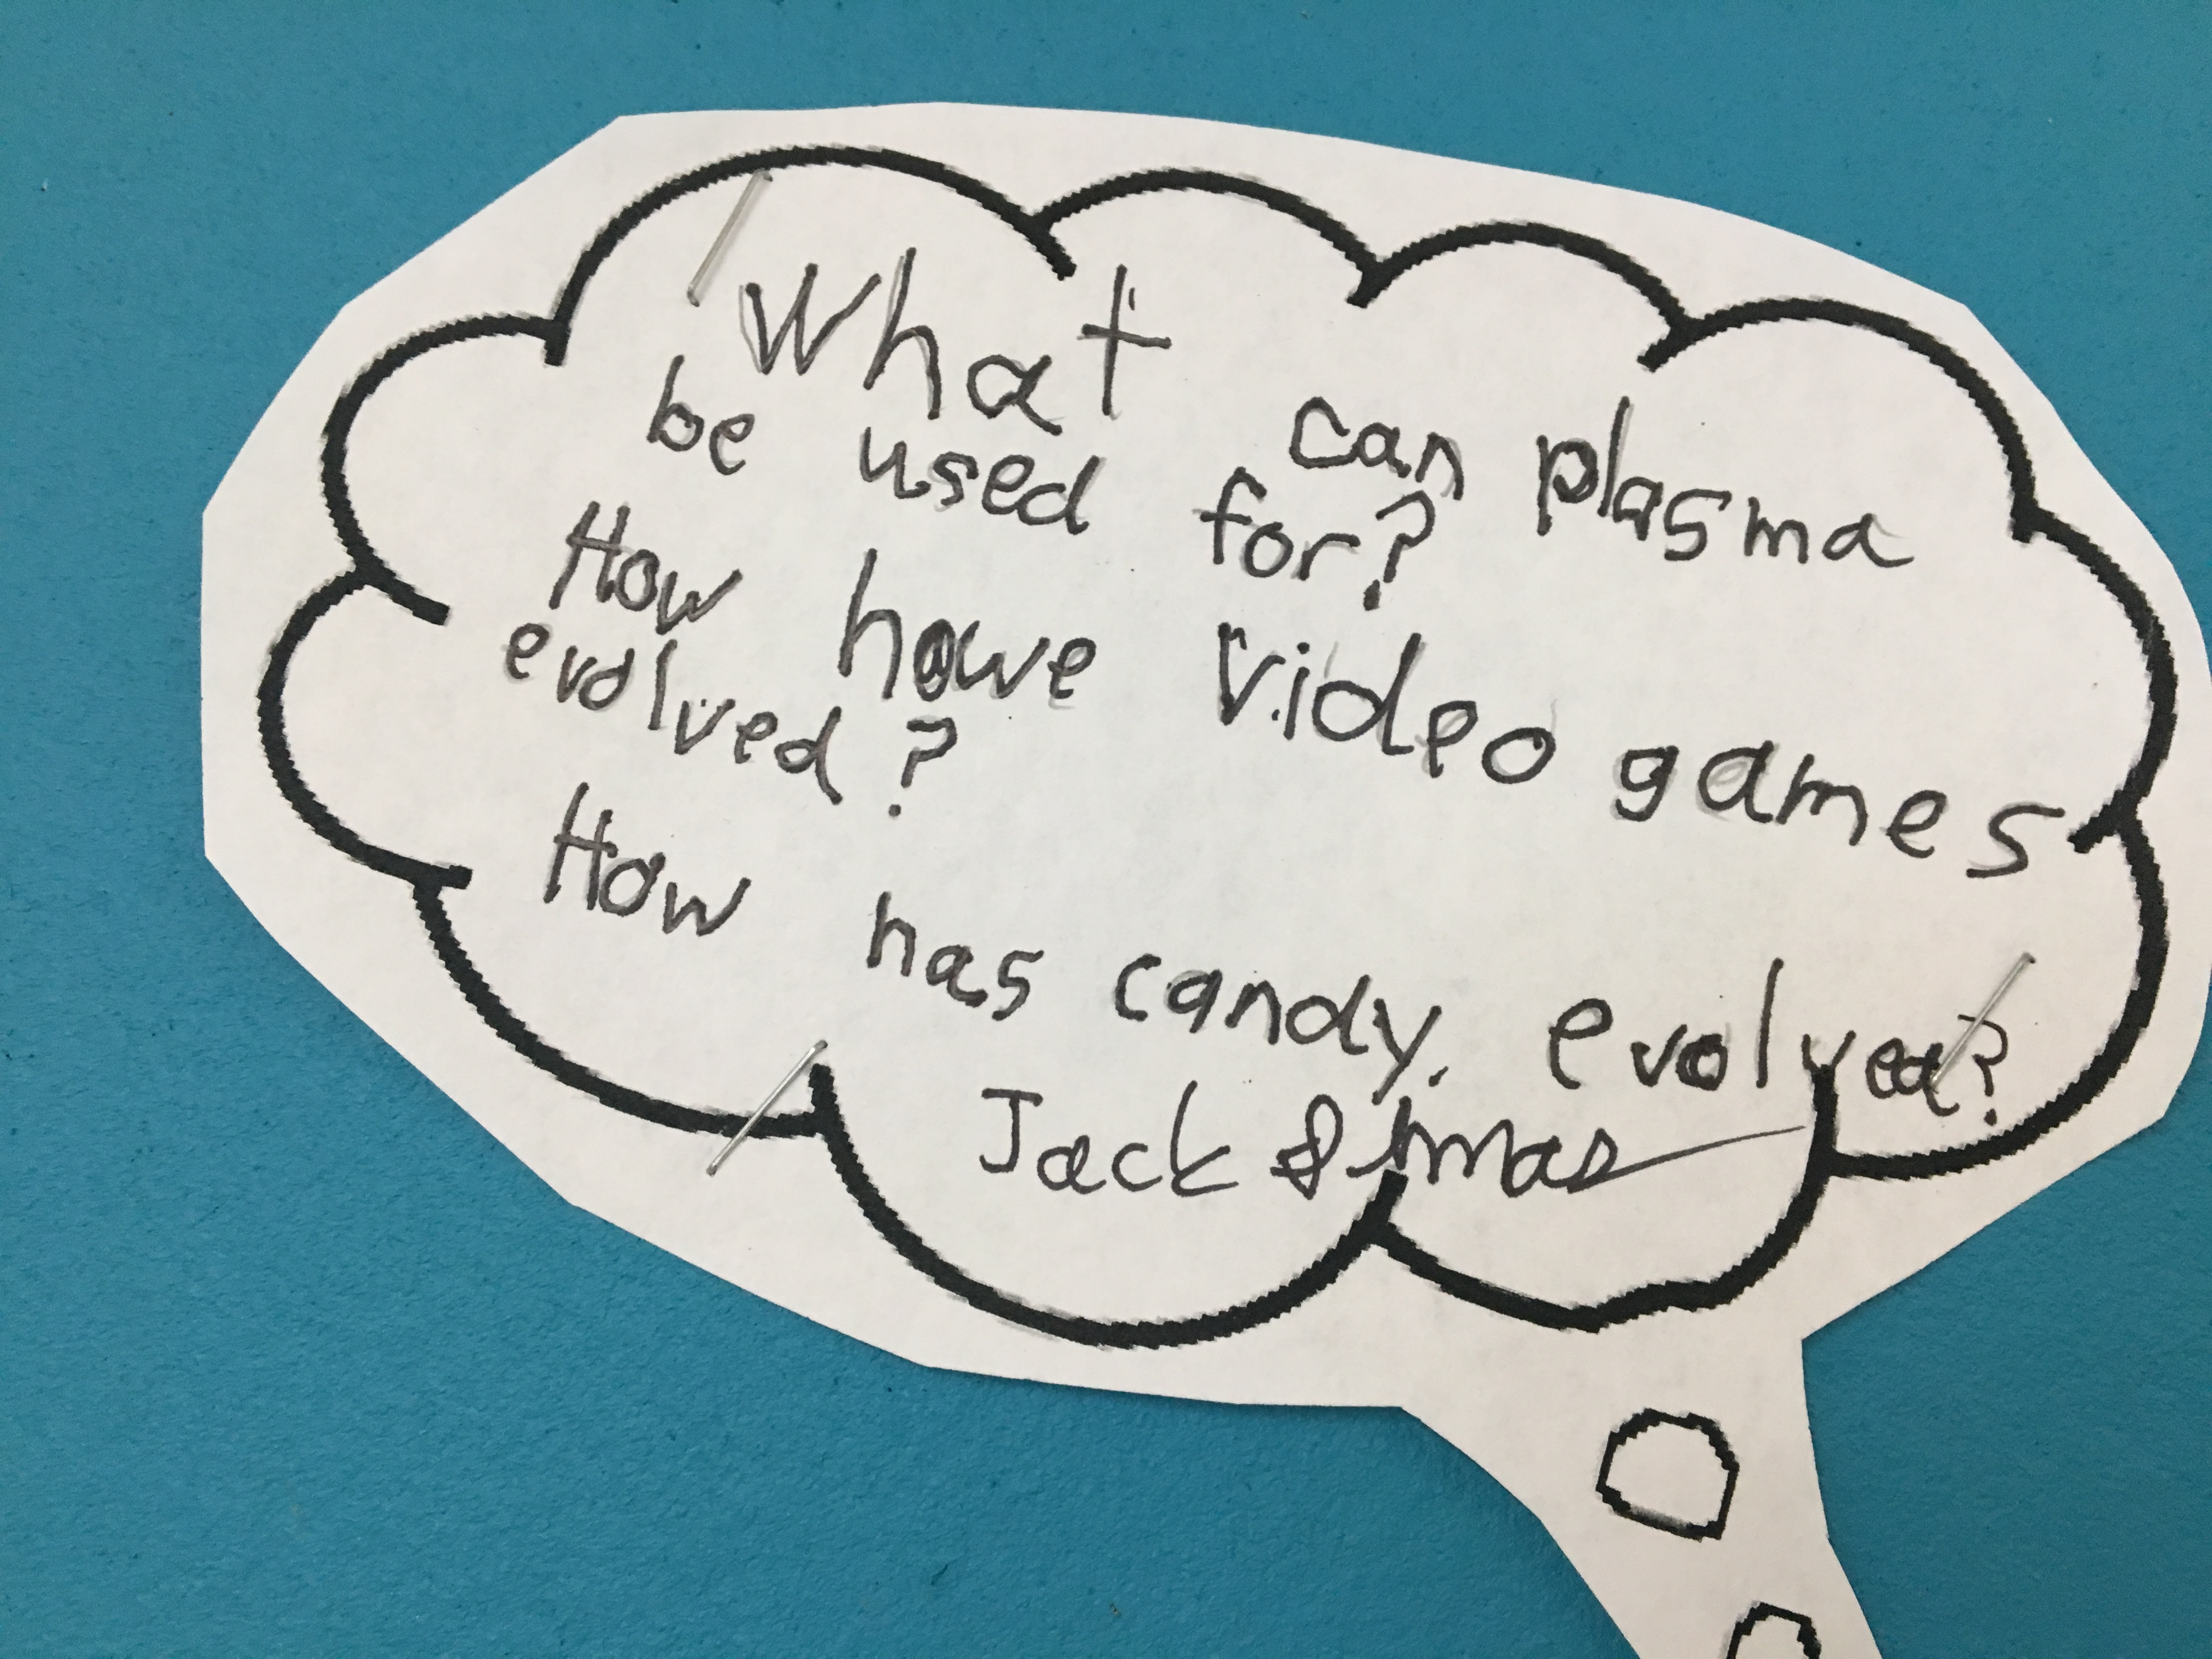 What can plasma
be used for?
How have video games
evolved?
How has candy evolved?
Jack &